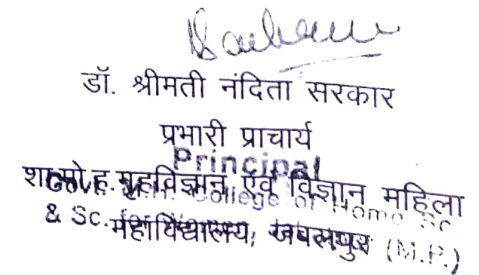 डॉ. श्रीमती नंदिता सरकार
प्रभारी प्राचार्य
Principal
शा. मो. ह. गृहविज्ञान एवं विज्ञान महिला
Govt. M.H. College of Home Sc
महाविद्यालय, जबलपुर
& Sc. for (M.P.)